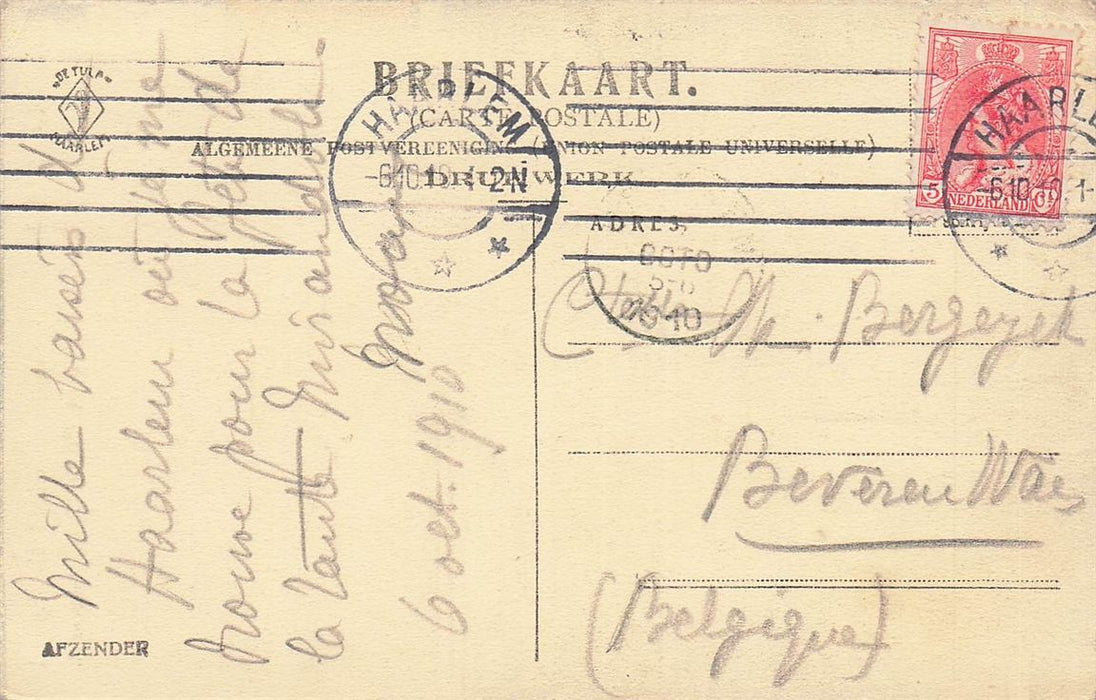 "DE TULP"
HAARLEM
BRIEFKAART.
(CARTE POSTALE)
ALGEMEENE POSTVEREENIGING (UNION POSTALE UNIVERSELLE)
DRUKWERK
HAARLEM
-6.10.10. 1-2N
5 NEDERLAND Ct
HAARLE
-6.10.10. 1-
ADRES,
10
Bergeyck
Beveren Waes
(Belgique)
Mille baisers de
Haarlem où je me
trouve pour la fête de
la tante
6 oct. 1910
AFZENDER